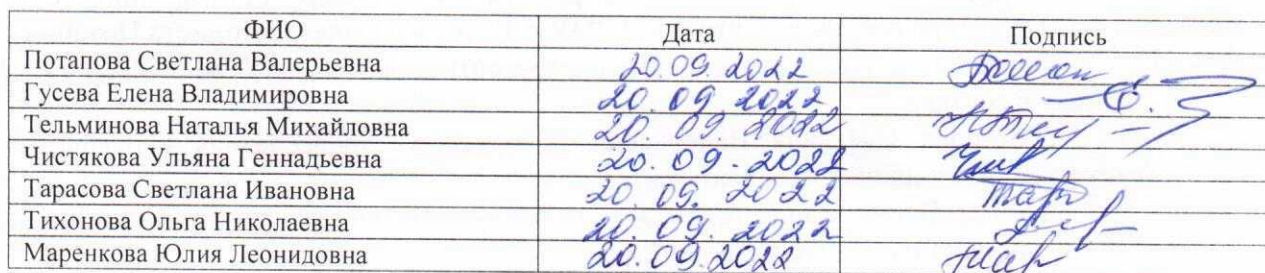 ФИО Дата Подпись
Потапова Светлана Валерьевна 20.09.2022
Гусева Елена Владимировна 20.09.2022
Тельминова Наталья Михайловна 20.09.2022
Чистякова Ульяна Геннадьевна 20.09.2022
Тарасова Светлана Ивановна 20.09.2022
Тихонова Ольга Николаевна 20.09.2022
Маренкова Юлия Леонидовна 20.09.2022